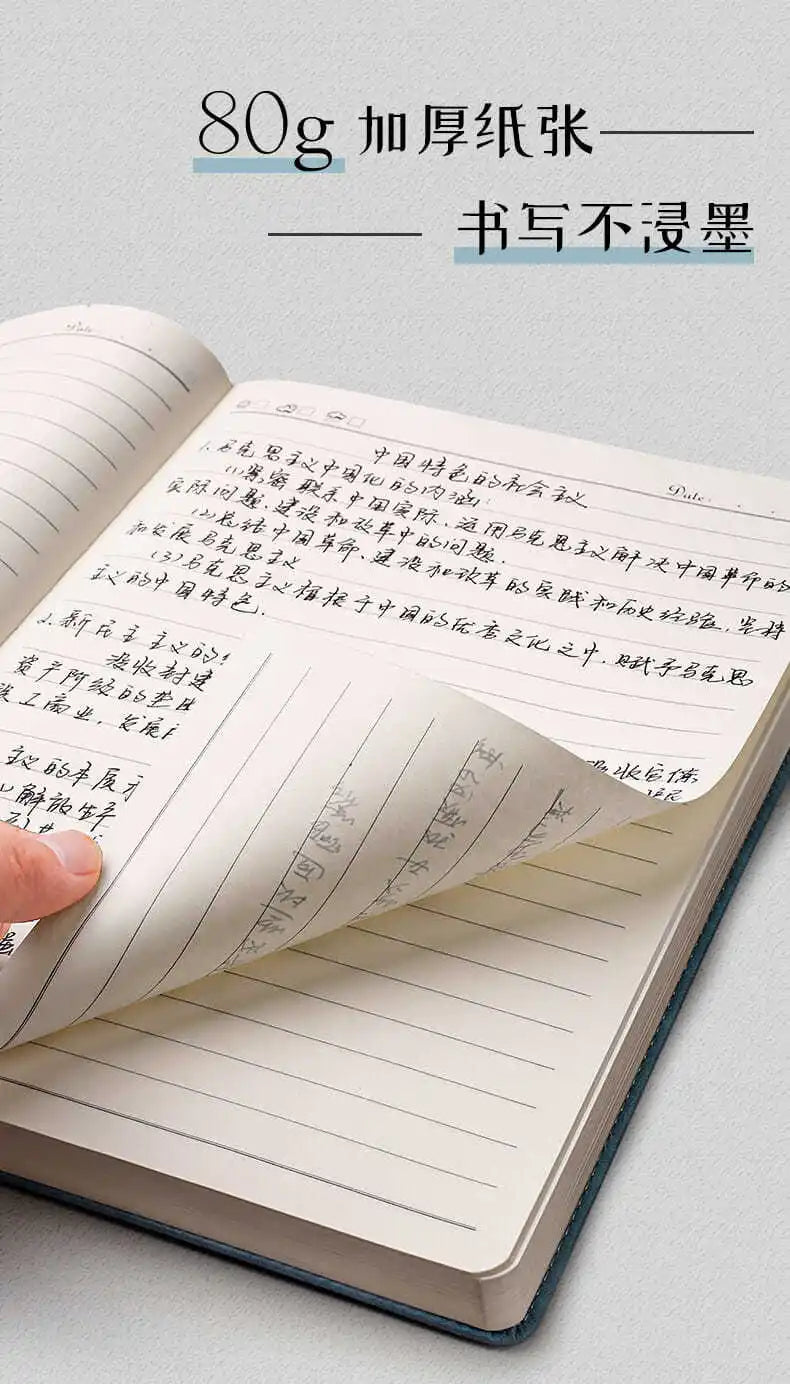 80g 加厚纸张
书写不浸墨
Date
Date
中国特色的社会主义
1.马克思主义中国化的内涵:
(1)紧密联系中国实际,运用马克思主义解决中国革命的
实际问题,建设和改革中的问题.
(2)总结中国革命、建设和改革的实践和历史经验,坚持
和发展马克思主义
(3)马克思主义植根于中国的优秀文化之中,赋予马克思
主义的中国特色.
2.新民主主义的
没收封建
资产阶级的
工商业,发展
收官僚
主义的本质
解放生